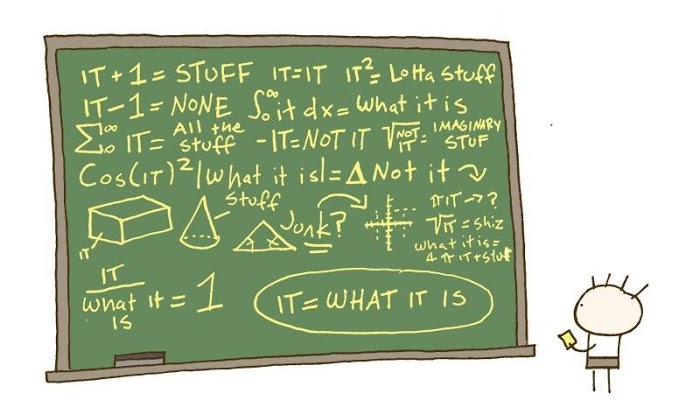 IT + 1 = STUFF IT=IT IT²= Lotta stuff
IT-1 = NONE ∫₀^∞ it dx= what it is
∑₀^∞ IT= All the stuff -IT=NOT IT √NOT IT= IMAGINARY STUF
Cos(IT)²|what it is|=Δ Not it
IT
Stuff
Junk?
πIT→?
√IT =shiz
what it is=
4πIT+stuf
IT
what it = 1
is
IT= WHAT IT IS